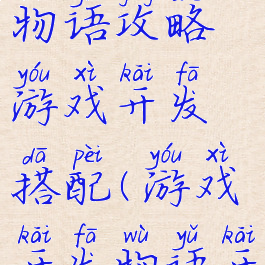 物语攻略
yóu xì kāi fā
游戏开发
dā pèi yóu xì
搭配(游戏
kāi fā wù yǔ kāi
开发物语开